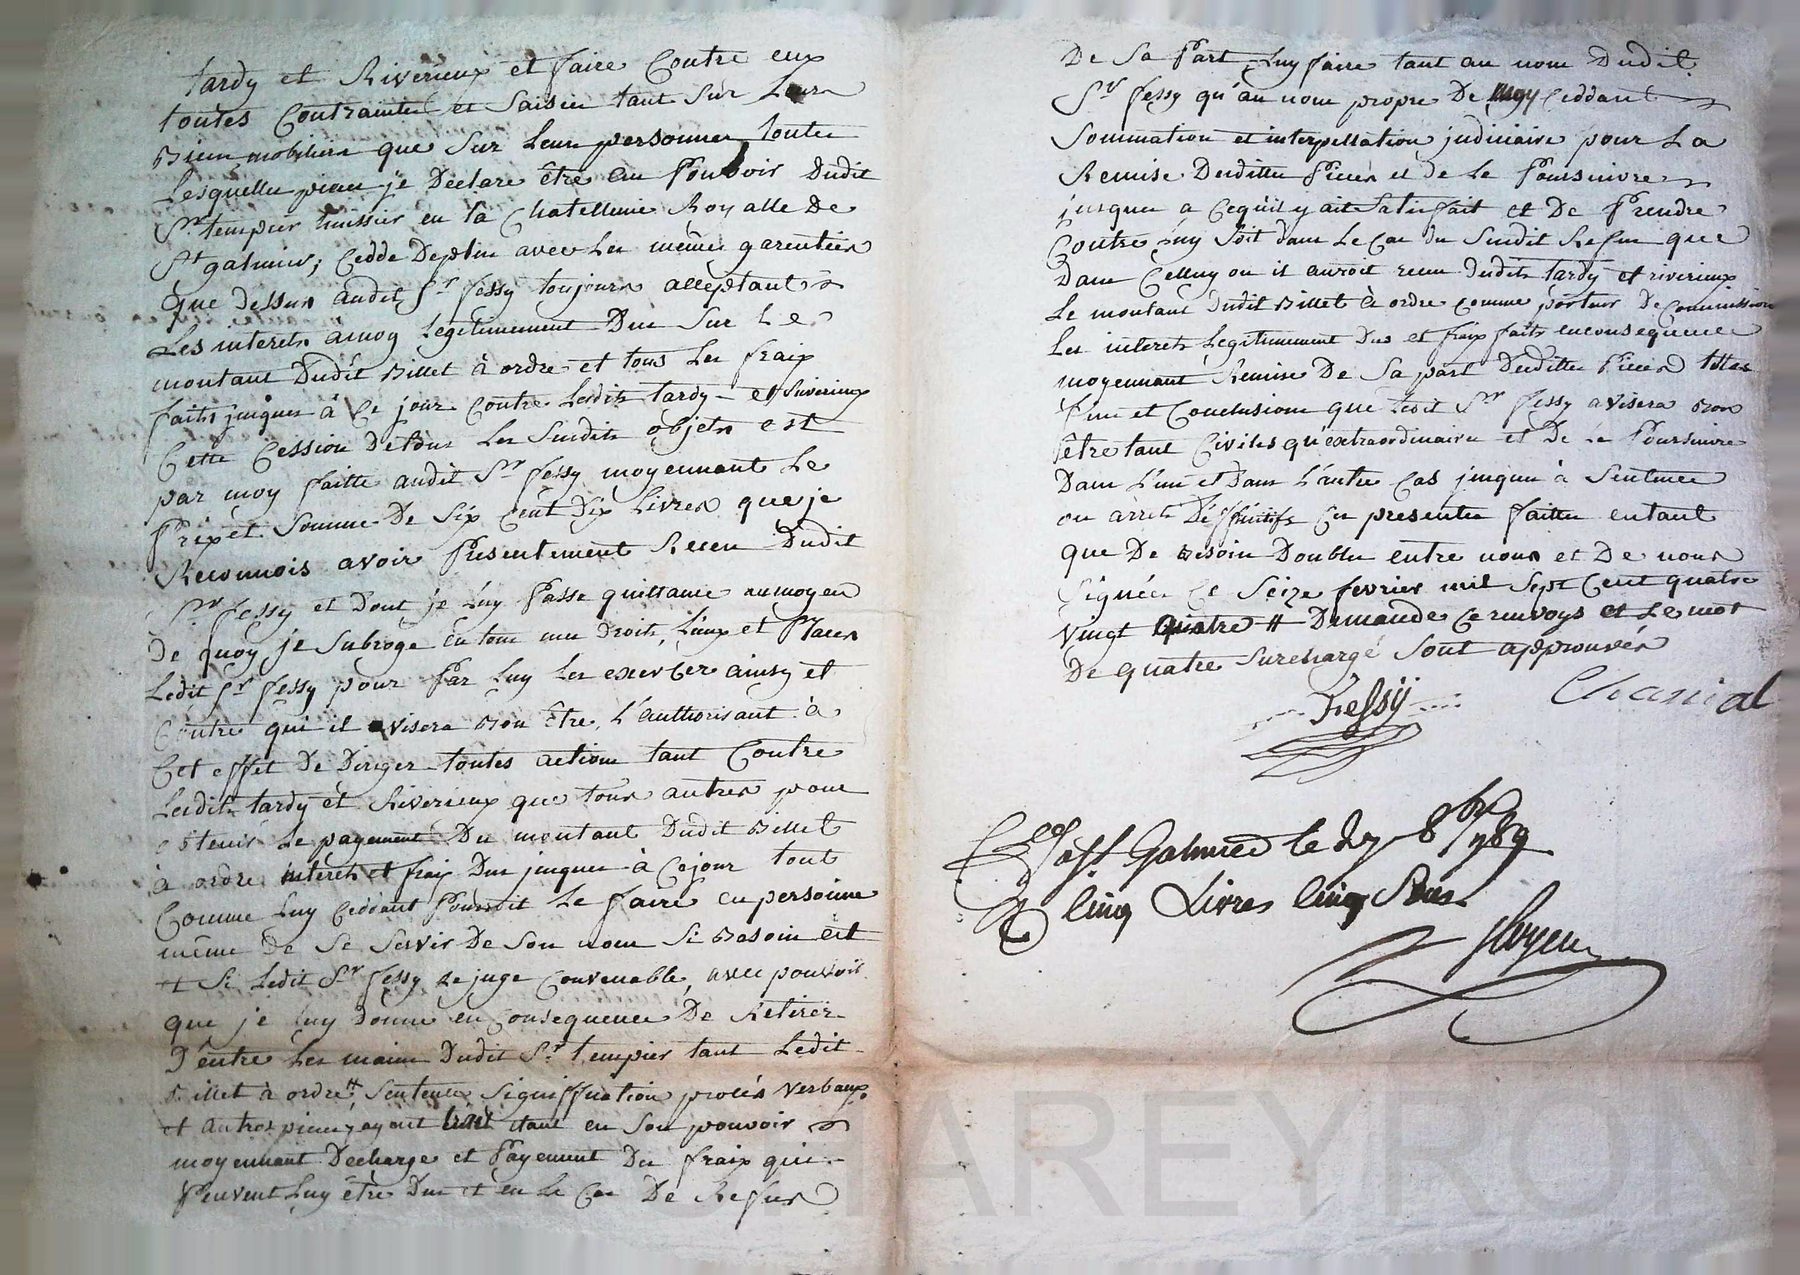 tardy et Riverieux et faire Contre eux
toutes Contraintes et Saisies tant Sur Leurs
Biens mobiliers que Sur Leurs personnes toutes
Lesquelles pieces je Declare être au Pouvoir Dudit
Sr. tempier huissier en la Chatellenie Royalle De
St galmier; Cedde Deplus avec Les même garenties
Que Dessus audit Sr fessy toujours acceptant
Les interets amoy Legitimement Dus Sur Le
montant Dudit Billet à ordre et tous Les fraix
faits jusques à Ce jour Contre Lesdits tardy et Riverieux
Cette Cession De tous Les Susdits objets est
par moy faitte audit Sr fessy moyennant Le
Prix et Somme De Six Cent Dix Livres que je
Reconnois avoir Presentement Receu Dudit
Sr fessy et Dont je Luy Passe quittance aumoyen
De quoy je Subroge en tous mes Droits, Lieux et Places
Ledit Sr fessy pour Par Luy Les exercer ainsy et
Contre qui il avisera Bon être, L'authorisant à
Cet effet De Diriger toutes actions tant Contre
Lesdits tardy et Riverieux que tous autres pour
obtenir Le payement Du montant Dudit Billet
à ordre interets et fraix Dus jusques à Cejour tout
Comme Luy Ceddant Pourroit Le faire en personne
même De Se Servir De Son nom Si Besoin est
et Si Ledit Sr fessy Le juge Convenable, avec pouvoir
que je Luy Donne en Consequence De Retirer
D'entre Les mains Dudit Sr tempier tant Ledit
Billet à ordre # Sentence Signiffication procés Verbaux
et autres pieces, ayant trait étant en Son pouvoir
moyennant Decharge et Payement Des fraix qui
Peuvent Luy être Dus et en Le Cas De Refus
De Sa Part, Luy faire tant au nom Dudit
Sr fessy qu'au nom propre De moy Ceddant
Sommation et interpellation judiciaire pour La
Remise Desdittes Pieces et de Le Poursuivre
jusques a Cequ'il y ait Satisfait et De Prendre
Contre Luy Soit dans Le Cas du Susdit Refus que
Dans Celluy ou il auroit receu dudits tardy et riverieux
Le montant dudit Billet à ordre Comme porteur De Commission
Les interets Legitimement Dus et fraix faits enconsequence
moyennant Remise De Sa part Desdittes Pieces telles
fins et Conclusions que Ledit Sr fessy avisera Bon
être tant Civiles qu'extraordinaires et De Le Poursuivre
Dans L'un et Dans L'autre Cas jusques à Sentence
ou arrets Déffinitifs Ces presentes faittes entant
que De Besoin Doubles entre nous et De nous
Signées Ce Seize fevrier mil Sept Cent quatre
Vingt Quatre # Demande Ce renvoys et Le mot
De quatre Surchargé Sont approuvés
Fessÿ
Chanial
à St Galmier le 27 8bre 1789
Cinq Livres Cinq Sous
CHAREYRON